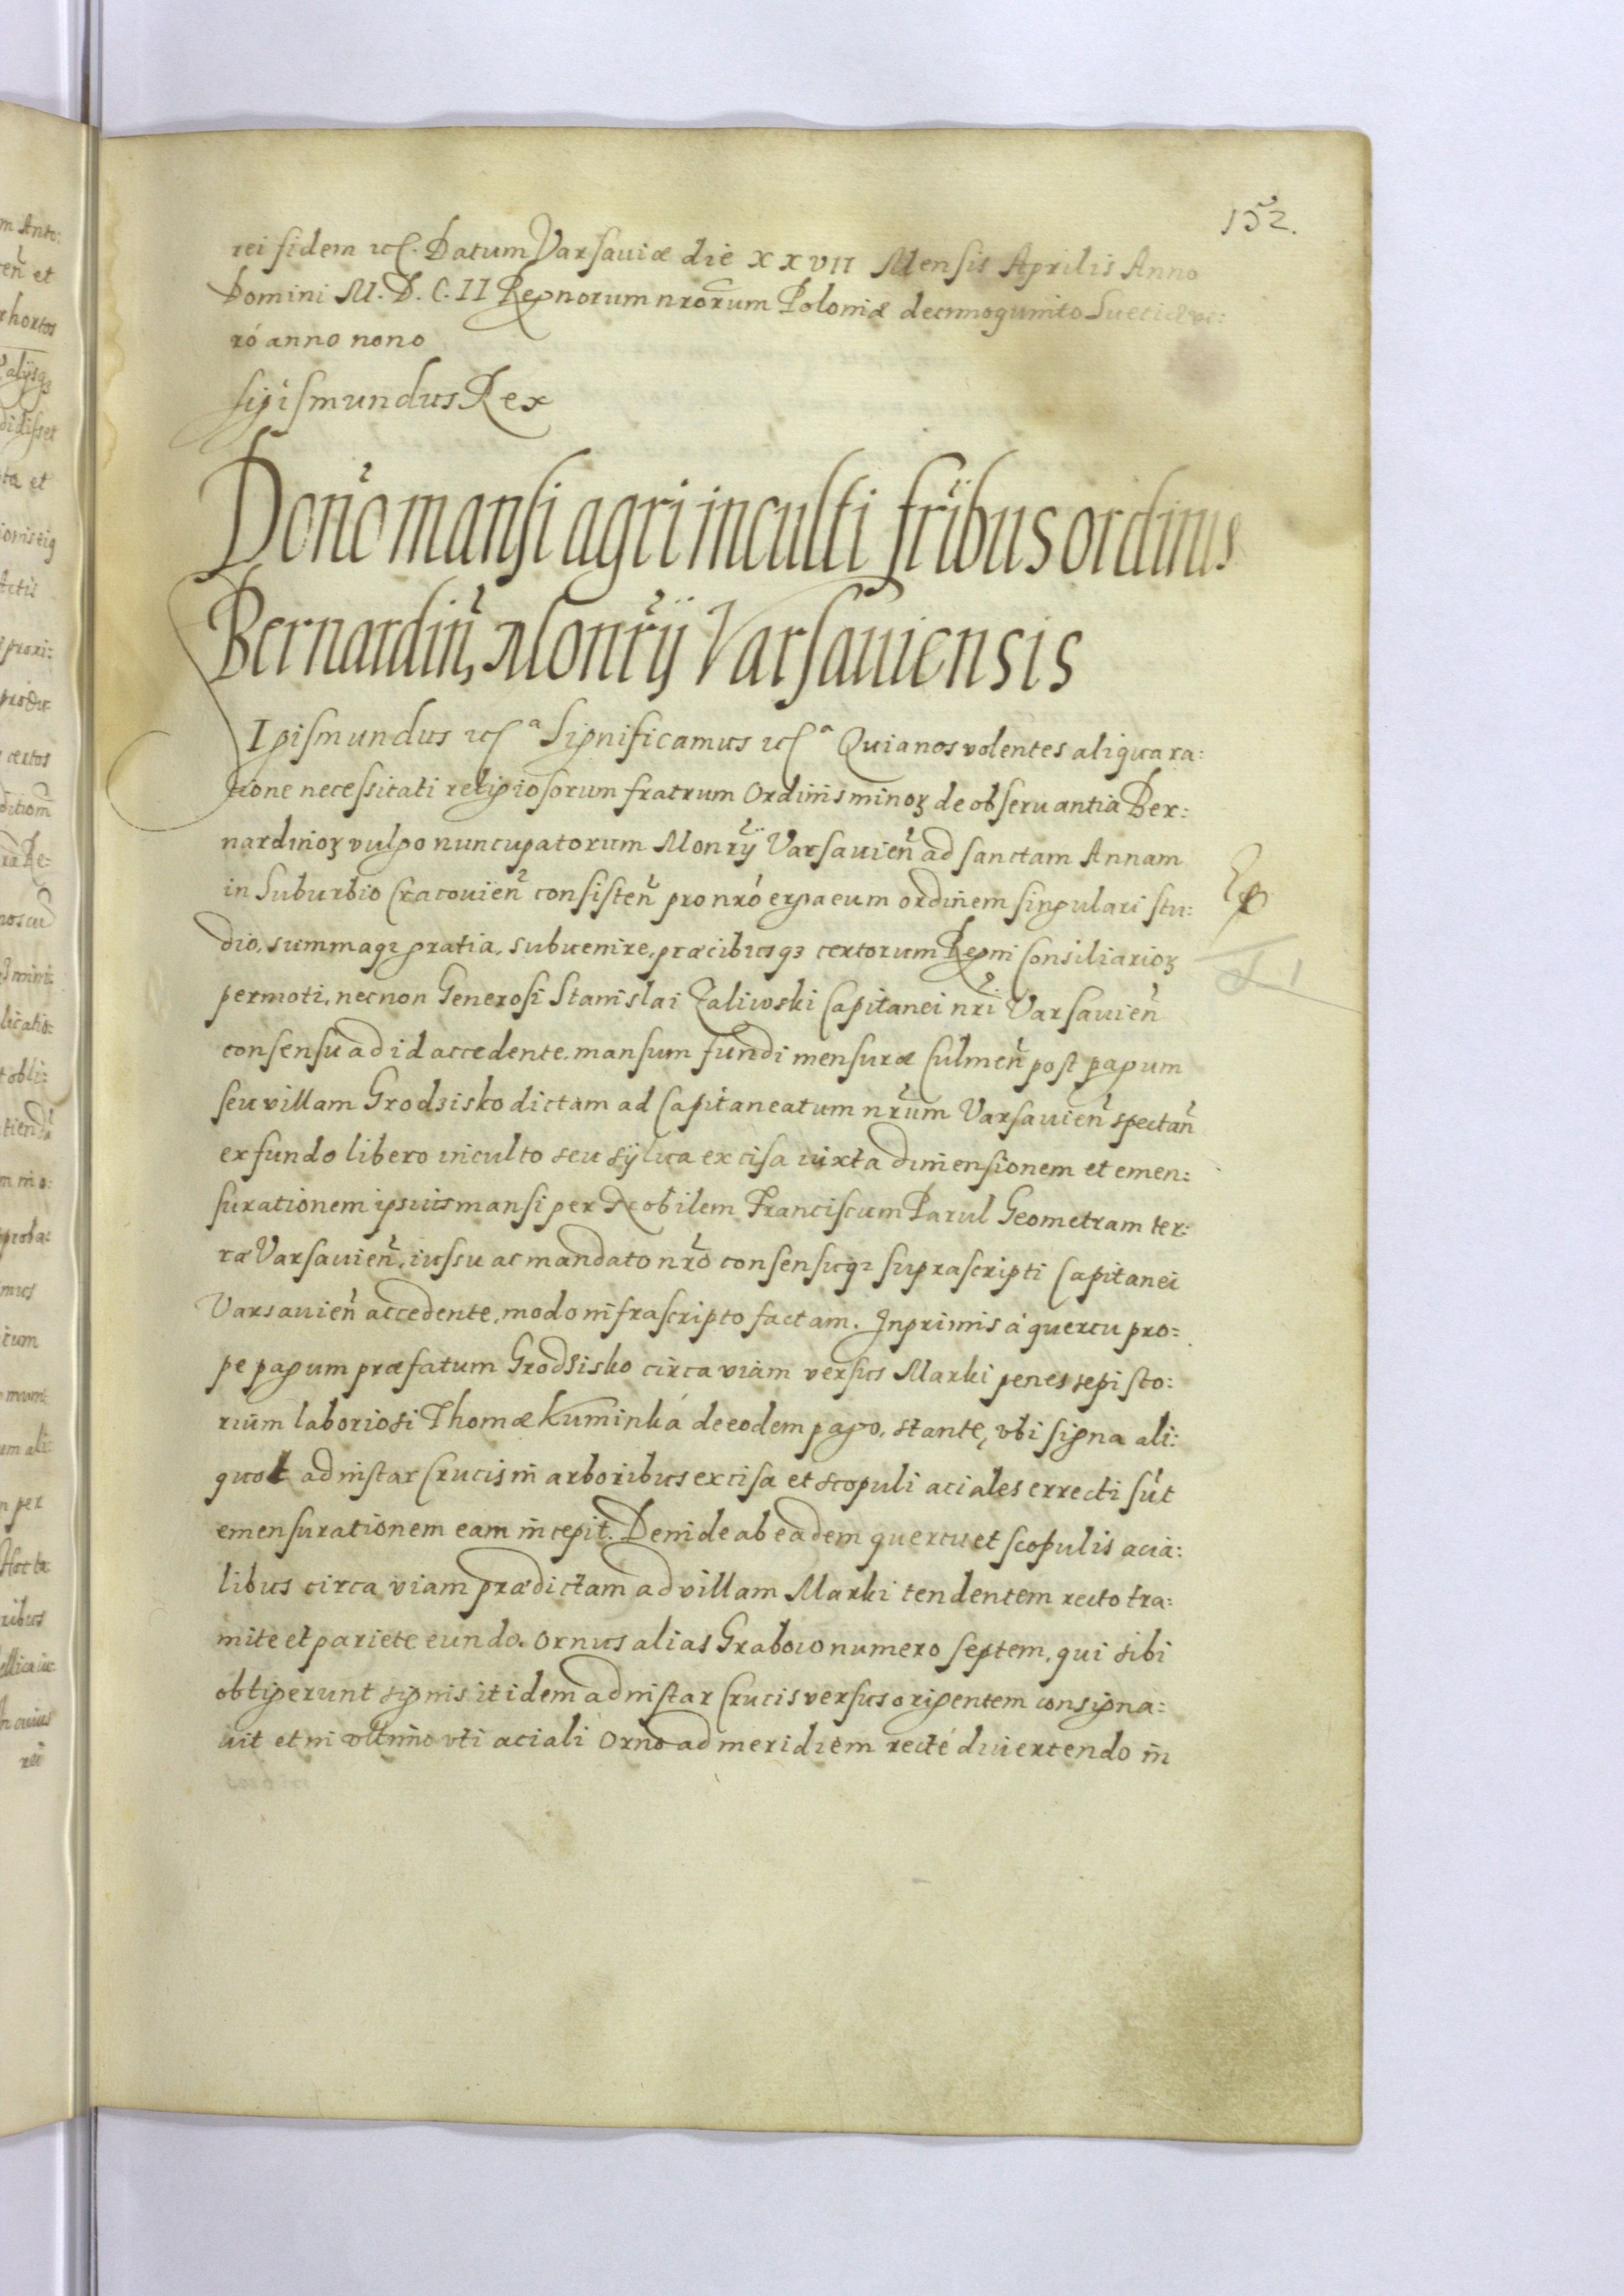 152.
rei fidem etc. Datum Varsaviæ die XXVII Mensis Aprilis Anno
Domini M.D.C.II Regnorum nrorum Poloniæ decimoquinto Sueciæ ve:
ró anno nono
Sigismundus Rex
Donõ mansi agri inculti fribus ordinis
Bernardiñ, Monrÿ Varsauiensis
SIgismundus etc.ª Significamus etc.ª Quia nos volentes aliqua ra:
tione necessitati religiosorum fratrum Ordinis minoꝝ de obseruantia Ber:
nardinoꝝ vulgo nuncupatorum Monrÿ Varsauieñ ad sanctam Annam
in Suburbio Cracouieñ consisteñ pro nró erga eum ordinem singulari stu:
dio, summaqꝫ gratia, subuenire, præcibusqꝫ certorum Regni Consiliarioꝝ
permoti, necnon Generosi Stanislai Zaliwski Capitanei nri Varsauieñ
consensu ad id accedente, mansum fundi mensuræ Culmeñ post pagum
seu villam Grodzisko dictam ad Capitaneatum nrum Varsauieñ spectañ
ex fundo libero inculto seu sÿlua excisa iuxta dimensionem et emen:
surationem ipsius mansi per Nobilem Franciscum Parul Geometram ter:
ræ Varsauieñ, iussu ac mandato nrõ consensuqꝫ suprascripti Capitanei
Varsauieñ accedente, modo infrascripto factam. Inprimis á quercu pro:
pe pagum præfatum Grodzisko circa viam versus Marki penes sepisto:
rium laboriosi Thomæ Kuminká de eodem pago, stante, vbi signa ali:
quot ad instar Crucis in arboribus excisa et scopuli aciales errecti sút
emensurationem eam incepit. Deinde ab eadem quercu et scopulis acia:
libus circa viam prædictam ad villam Marki tendentem recto tra:
mite et pariete eundo, ornus alias Grabow numero septem, qui sibi
obtigerunt signis itidem ad instar Crucis versus origentem consigna:
uit et in vltimo vti aciali Orno ad meridiem recté diuertendo in